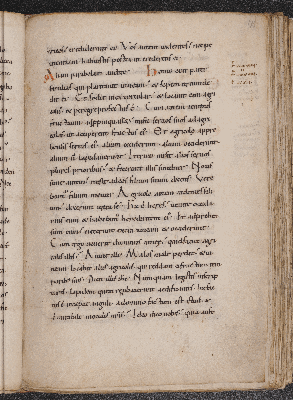 crediderunt ei. Vos autem videntes nec pe
nitentiam habuistis postea ut crederetis ei.
Aliam parabolam audite. Homo erat pater
familias qui plantavit vineam et sepem circumde
dit ei. Et fodit in ea torcular. et locavit eam agri
colis. et peregre profectus est. Cum autem tempus
fructuum appropinquasset misit servos suos ad agri
colas ut acciperent fructus eius. Et agricole appre
hensis servis eius. alium ceciderunt. alium occiderunt.
alium lapidaverunt. Iterum misit alios servos
plures prioribus. et fecerunt illis similiter. Novis
sime autem misit ad eos filium suum dicens. Vere
buntur filium meum. Agricole autem videntes fili
um dixerunt intra se. Hic est heres. venite occida
mus eum et habebimus hereditatem eius. Et apprehen
sum eum eiecerunt extra vineam et occiderunt.
Cum ergo venerit dominus vinee. quid faciet agri
colis illis. Aiunt illi. Malos male perdet. et vi
neam locabit aliis agricolis. qui reddant ei fructum tem
poribus suis. Dicit illis Numquam legistis in scrip
turis. Lapidem quem reprobaverunt edificantes. hic fac
tus est in caput anguli. a domino factum est istud. et
est mirabile in oculis nostris. Ideo dico vobis quia aufe